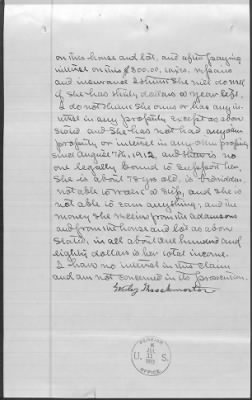 on this house and lot, and after paying
interest on this $800.00, taxes, repairs
and insurance I think she will do well
if she has thirty dollars a year left.
I do not think she owns or has any in-
terest in any property except as above
stated, and she has not had any other
property or interest in any other property
since August 7th, 1912, and there is no
one legally bound to support her,
she is about 78 yrs old, is bedridden,
not able to walk a step, and she is
not able to earn anything, and the
money she receives from the
and from the house and lot as above
stated, in all about one hundred and
eighty dollars is her total income.
I have no interest in this claim
and am not concerned in its prosecution.
Throckmorton
PENSION
U. S.
OFFICE